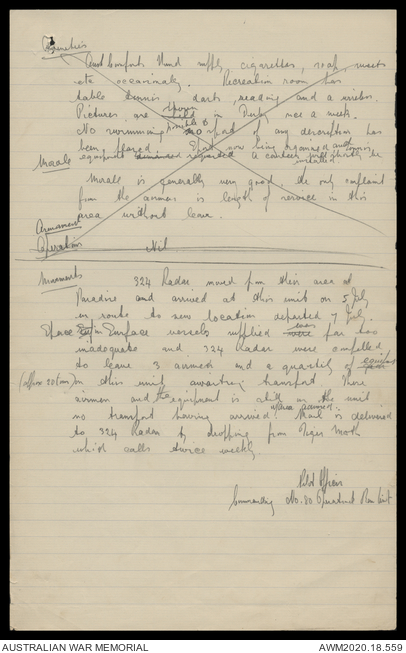 Amenities
Aust Comforts Fund supply cigarettes, soap, sweets
etc occasionally. Recreation room has
table tennis, darts, reading and a wireless.
Pictures are shown in Derby once a week.
No swimming possible & no sport of any description has
been played. Sport now being organised and
equipment requested. A canteen will shortly be
installed.
Morale
Morale is generally very good, the only complaint
from the airmen is length of service in this
area without leave.
Armament
Operations Nil
Movements 324 Radar moved from their area at
Paradise and arrived at this unit on 5 July
en route to new location departed 7 July.
Space in Surface vessels supplied was far too
inadequate and 324 Radar were compelled
to leave 3 airmen and a quantity of equipment
(approx 20 tons) on this unit awaiting transport. These
airmen and the equipment is still on the unit
no transport having arrived. Mail is delivered
to 324 Radar by dropping from Tiger Moth
which calls twice weekly.
Pilot Officer
Commanding No. 80 Operational Base Unit
AUSTRALIAN WAR MEMORIAL
AWM2020.18.559